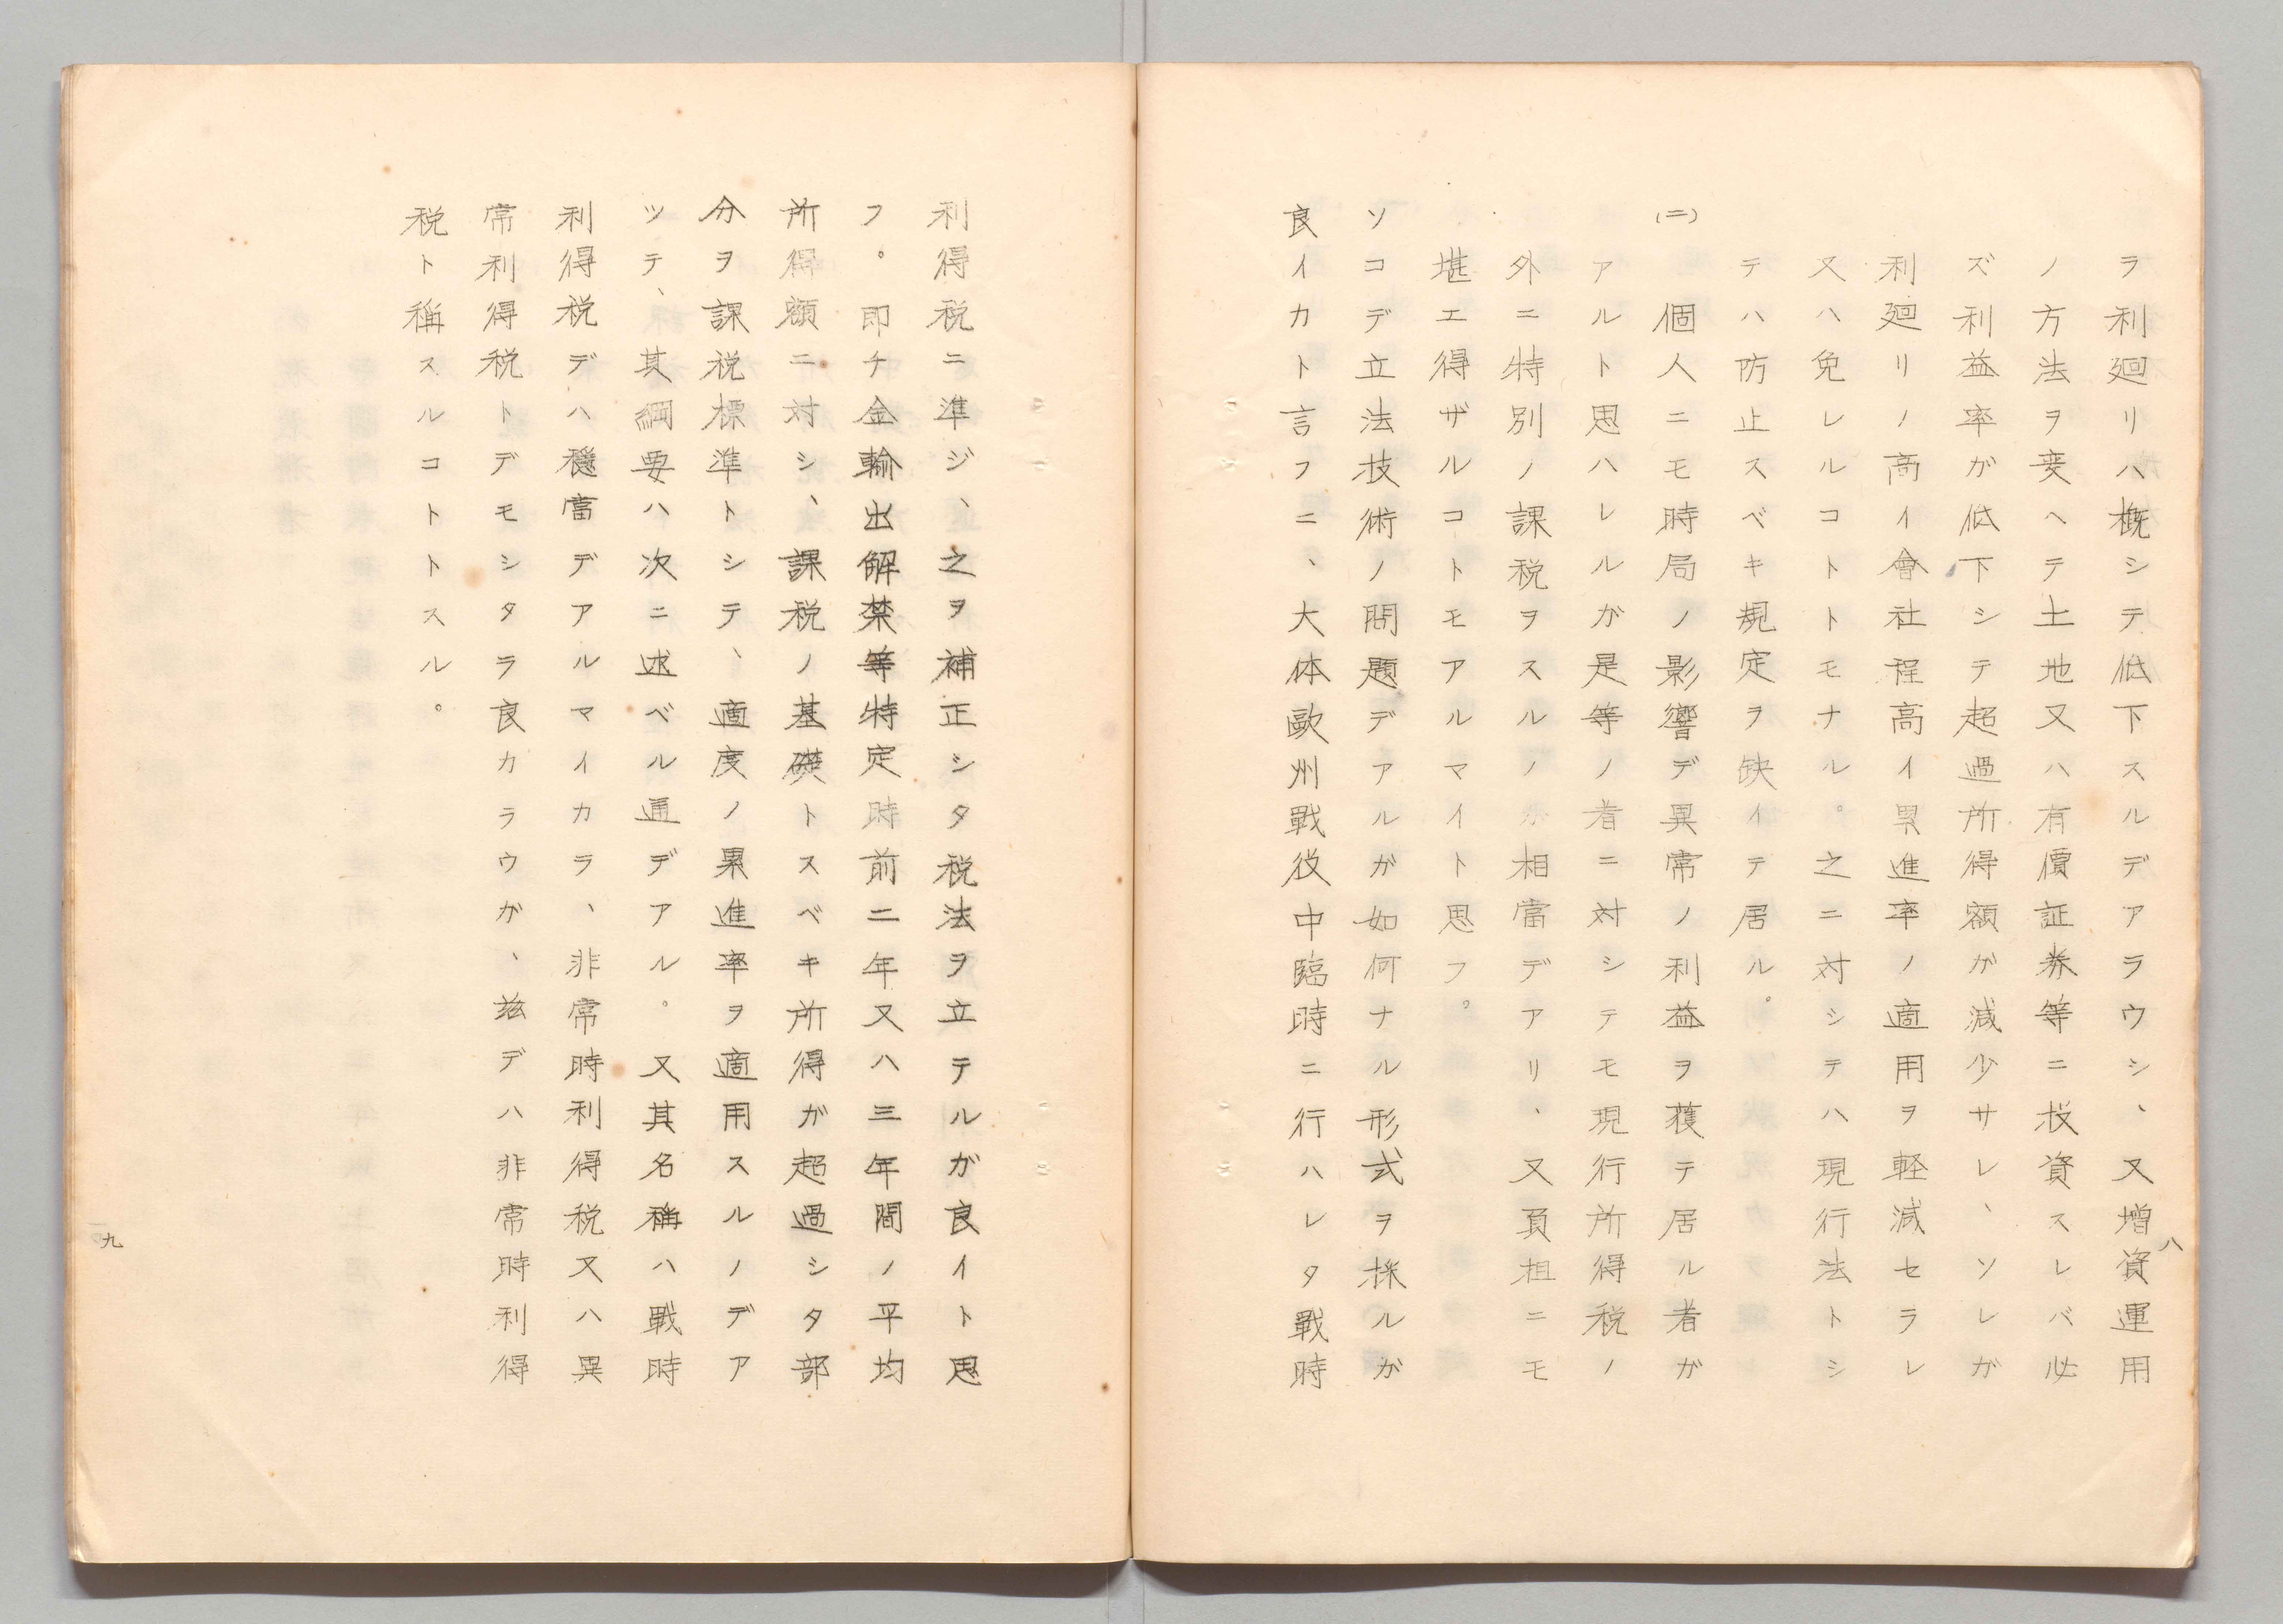 ラ利廻リハ概シテ低下スルデアラウシ、又増資運用
ノ方法ヲ変ヘテ土地又ハ有價証券等ニ投資スレバ必
ズ利益率ガ低下シテ超過所得額ガ減少サレ、ソレガ
利廻リノ高イ會社程高イ累進率ノ適用ヲ軽減セラレ
又ハ免レルコトトモナル。之ニ対シテハ現行法トシ
テハ防止スベキ規定ヲ缺イテ居ル。
(二) 個人ニモ時局ノ影響デ異常ノ利益ヲ獲テ居ル者ガ
アルト思ハレルガ是等ノ者ニ対シテモ現行所得税ノ
外ニ特別ノ課税ヲスルノガ相當デアリ、又負担ニモ
堪エ得ザルコトモアルマイト思フ。
ソコデ立法技術ノ問題デアルガ如何ナル形式ヲ採ルガ
良イカト言フニ、大体歐州戰役中臨時ニ行ハレタ戰時
八
利得税ニ準ジ、之ヲ補正シタ税法ヲ立テルガ良イト思
フ。即チ金輸出解禁等特定時前二年又ハ三年間ノ平均
所得額ニ対シ、課税ノ基礎トスベキ所得ガ超過シタ部
分ヲ課税標準トシテ、適度ノ累進率ヲ適用スルノデア
ツテ、其綱要ハ次ニ述ベル通デアル。又其名稱ハ戰時
利得税デハ穏當デアルマイカラ、非常時利得税又ハ異
常利得税トデモシタラ良カラウガ、茲デハ非常時利得
税ト稱スルコトトスル。
九